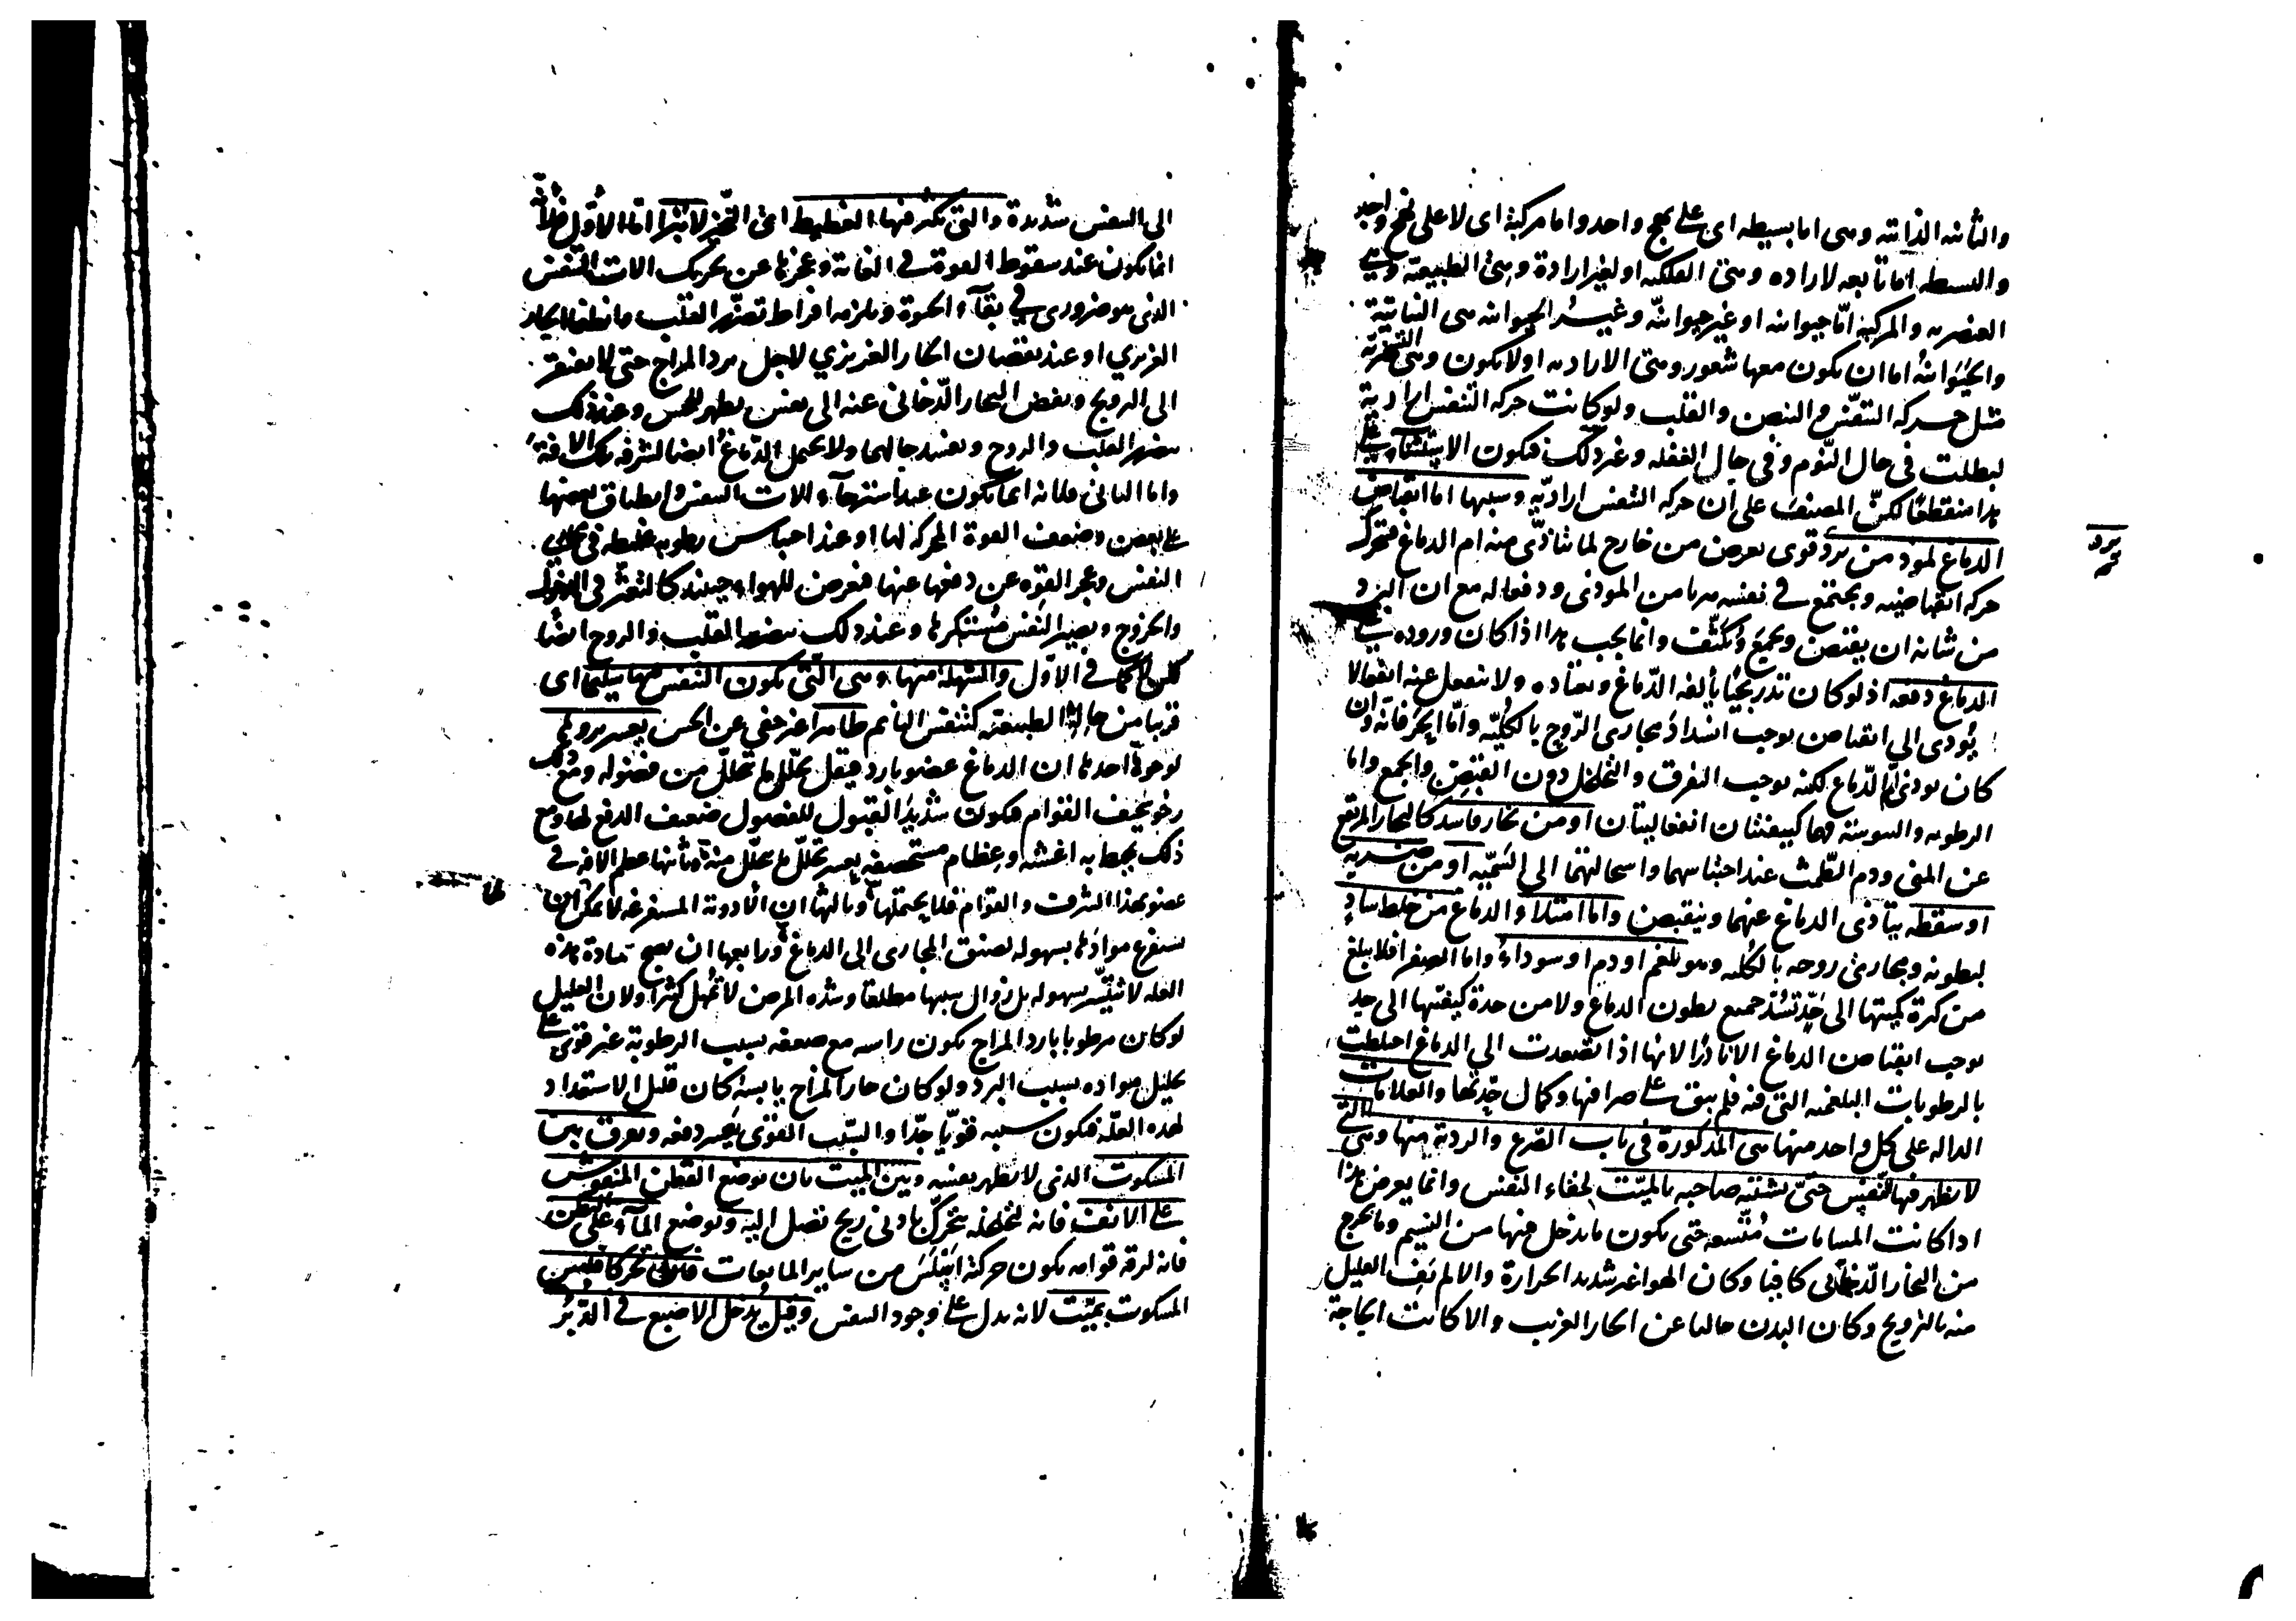 والثانيه الذاتيه وهى اما بسيطه اى على نهج واحد واما مركبة اى لا على نهج واحد
والبسيطه اما تابعه لاراده وهى الفلكيه او لغير ارادة وهى الطبيعية وهى
العنصريه والمركبة امّا حيوانيه او غير حيوانيّه وغير الحيوانيه هى النباتية
والحيوانيّه اما ان يكون معها شعور وهى الاراديه او لا يكون وهى التسخيريّه
مثل حركه التنفّس والنبض والقلب ولو كانت حركه التنفس اراديّة
لبطلت فى حال النّوم وفى حال الغفله وغير ذلك فيكون الاستثناء على
هذا منقطعًا لكنّ المصنف على ان حركه التنفس اراديّه وسببها اما انقباض
الدماغ لموذ من برد قوى يعرض من خارج لما يتاذّى منه ام الدماغ فتحرك
برد
حركه انقباضيه ويجتمع فى نفسه هربا من الموذى ودفعا له مع ان البرد
من شانه ان يقبض ويجمع ويكثّف وانما يجب هذا اذا كان وروده على
الدماغ دفعه اذ لو كان تدريجيًا يألفه الدّماغ ويعتاده ولا ينفعل عنه انفعالا
يُودى الى انقباض يوجب انسداد مجارى الرّوح بالكليّه وامّا الحرّ فانّه وان
كان يوذى الدّماغ لكنه يوجب التفرق والتخلخل دون القبض والجمع واما
الرطوبه واليبوسة فهما كيفيتان انفعاليتان او من بخار فاسد كالبخار المرتفع
عن المنى ودم الطّمث عند احتباسهما واستحالتهما الى السّمّيّه او من ضربة
او سقطه يتاذى الدماغ عنهما وينقبض واما امتلاء الدماغ من خلط سادٍ
لبطونه ومجارى روحه بالكليه وهو بلغم او دم او سوداء واما الصفرا فلا يبلغ
من كثرة كميتها الى حدٍّ تسُدّ جميع بطون الدماغ ولا من حدة كيفيتها الى حد
يوجب انقباض الدماغ الا نادرًا لانها اذا تصعدت الى الدماغ اختلطت
بالرطوبات البلغميه التى فيه فلم يبق على صرافتها وكمال حِدّتها والعلامات
الداله على كل واحد منها هى المذكورة فى باب الصّرع والردية منها وهى التى
لا يظهر فيها التّنفّس حتىّ يشتبه صاحبه بالميّت لخفاء التنفس وانما يعرض هذا
اذا كانت المسامات مُتّسعه حتى يكون ما يدخل منها من النسيم وما يخرج
من البخار الدّخانى كافيا وكان الهوا غير شديد الحرارة والا لم يَفِ القليل
منه بالترويح وكان البدن خاليا عن الحار الغريب والا كانت الحاجة
الى التنفس شديدة والتى يكثر فيها الغطيط اى النّخير لا تبرأ امّا الاوّل فلأنّه
انما يكون عند سقوط القوة فى الغاية وعجزها عن تحريك الات التنفس
الذى هو ضرورى فى بقآء الحيوة ويلزمه افراط تضرّر القلب وانطفا الحار
الغريزي او عند نقصان الحار الغريزي لاجل برد المزاج حتى لا يفتقر
الى الترويح ونفض البخار الدّخانى عنه الى تنفس يظهر للحس وعند ذلك
يتضرر القلب والروح ويفسد حالهما ولا يحتمل الدّماغ ايضا لشرفه تلك الافة
واما الثانى فلانه انما يكون عند استرخآء الات التنفس وانطباق بعضها
على بعض وضعف القوة المحركه لها او عند احتباس رطوبه غليظه فى مجارى
النفس وعجز القوّه عن دفعها عنها فيعرض للهواء حينئذ كالتعثّر فى الدخول
والخروج ويصير النّفس مُستنكرها وعند ذلك يتضرر القلب والروح ايضًا
لكن لا كما فى الاوّل والسّهلة منها وهى الّتى يكون التنفس فيها سليمًا اى
قريبا من حاله الطبيعيه كتنفس النايم ظاهرا غير خفى عن الحس يعسر بروها
لوجوه احدها ان الدماغ عضو بارد فيقل تحلّل ما تحلّل من فضوله ومع ذلك
رخو سخيف القوام فيكون شديدَ القبول للفضول ضعيف الدفع لها ومع
ذلك يحيط به اغشيه وعظام مستحصفه يعسر تحلّل ما يتحلّل منه وثانيها عظم الافه فى
عضو بهذا الشرف والقوام فلا يحتملها وثالثها ان الادوية المستفرغه لا يمكن ان
يستفرغ موادّها بسهوله لضيق المجارى الى الدماغ ورابعها ان نضج مادة هذه
العله لا يتيسّر بسهوله بل زوال سببها مطلقا وشدة المرض لا تمهل كثيرًا ولان العليل
لو كان مرطوبا بارد المزاج يكون راسه مع ضعفه بسبب الرطوبة غير قوى على
تحليل مواده بسبب البرد ولو كان حار المزاج يابسة كان قليل الاستعداد
لهذه العلّه فيكون سببه قويًّا جدّا والسّبب القوّى يعسر دفعه ويعرق بين
المسكوت الذى لا يظهر نفسه وبين الميت بان يوضع القطن المنفوش
على الانف فانه لتخلخله يتحرّك بادنى ريح تصل اليه ويوضع المآء على البطن
فانه لرقه قوامه يكون حركته اَسْلَسَ من ساير المايعات فان تحركا فليس
المسكوت بميّت لانه يدل على وجود التنفس وقيل يُدخل الاصبع فى الدّبُر